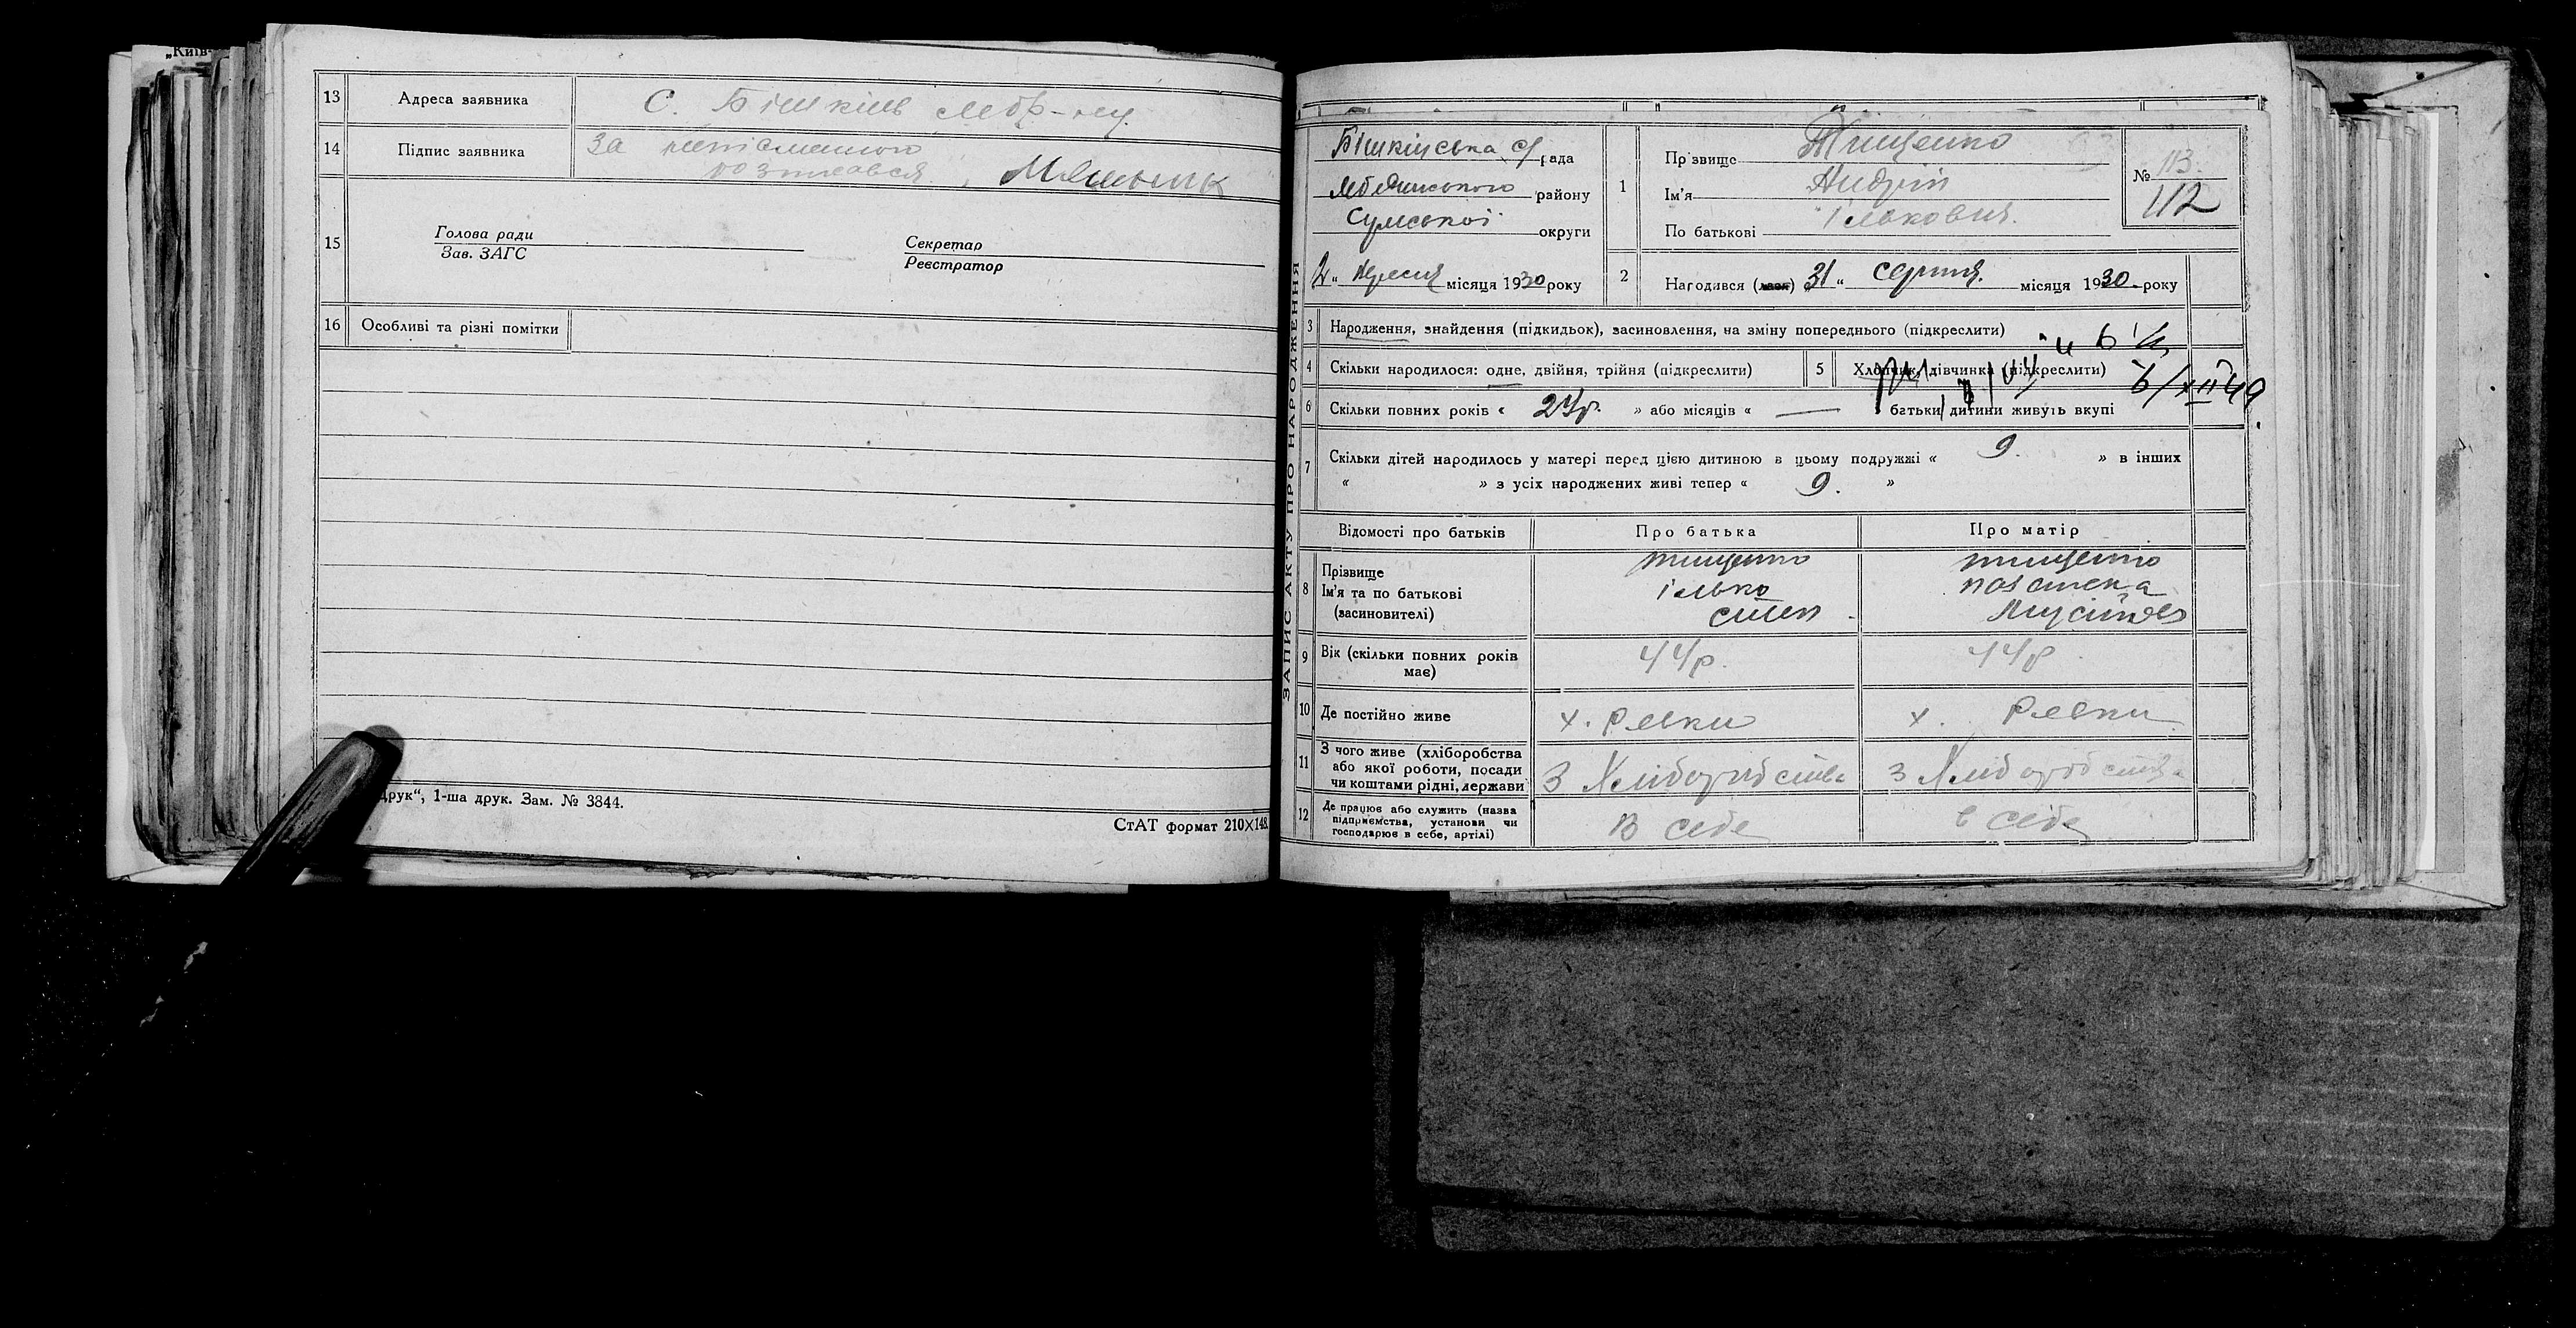 „Київ-
13 Адреса заявника С. Бішкінь Лебр-ну.
14 Підпис заявника За неписьменого
розписався. Мельник
15 Голова ради
Зав. ЗАГС
Секретар
Реєстратор
16 Особливі та різні помітки
друк“, 1-ша друк. Зам. № 3844.
СтАТ формат 210×148.
ЗАПИС АКТУ ПРО НАРОДЖЕННЯ
Бішкінська с/рада
Лебединського району
Сумської округи
2 „ вересня місяця 1930 року
1 Прізвище Тищенко
Ім'я Андрій
По батькові Ількович.
№ 113
112
2 Народився (лась) „31“ серпня. місяця 1930 року
3 Народження, знайдення (підкидьок), засиновлення, на зміну попереднього (підкреслити)
4 Скільки народилося: одне, двійня, трійня (підкреслити)
5 Хлопчик, дівчинка (підкреслити)
6 Скільки повних років « 24р. » або місяців « — » батьки дитини живуть вкупі
7 Скільки дітей народилось у матері перед цією дитиною в цьому подружжі « 9. » в інших
« » з усіх народжених живі тепер « 9. »
Відомості про батьків Про батька Про матір
8 Прізвище
Ім'я та по батькові
(засиновителі)
Тищенко
Ілько
Степ
Тищенко
Мусіїва
9 Вік (скільки повних років
має)
44р. 44р
10 Де постійно живе х. Ревки х. Ревки
11 З чого живе (хліборобства
або якої роботи, посади
чи коштами рідні, держави
З Хліборобства З Хліборобства
12 Де працює або служить (назва
підприємства, установи чи
господарює в себе, артілі)
В себе в себе